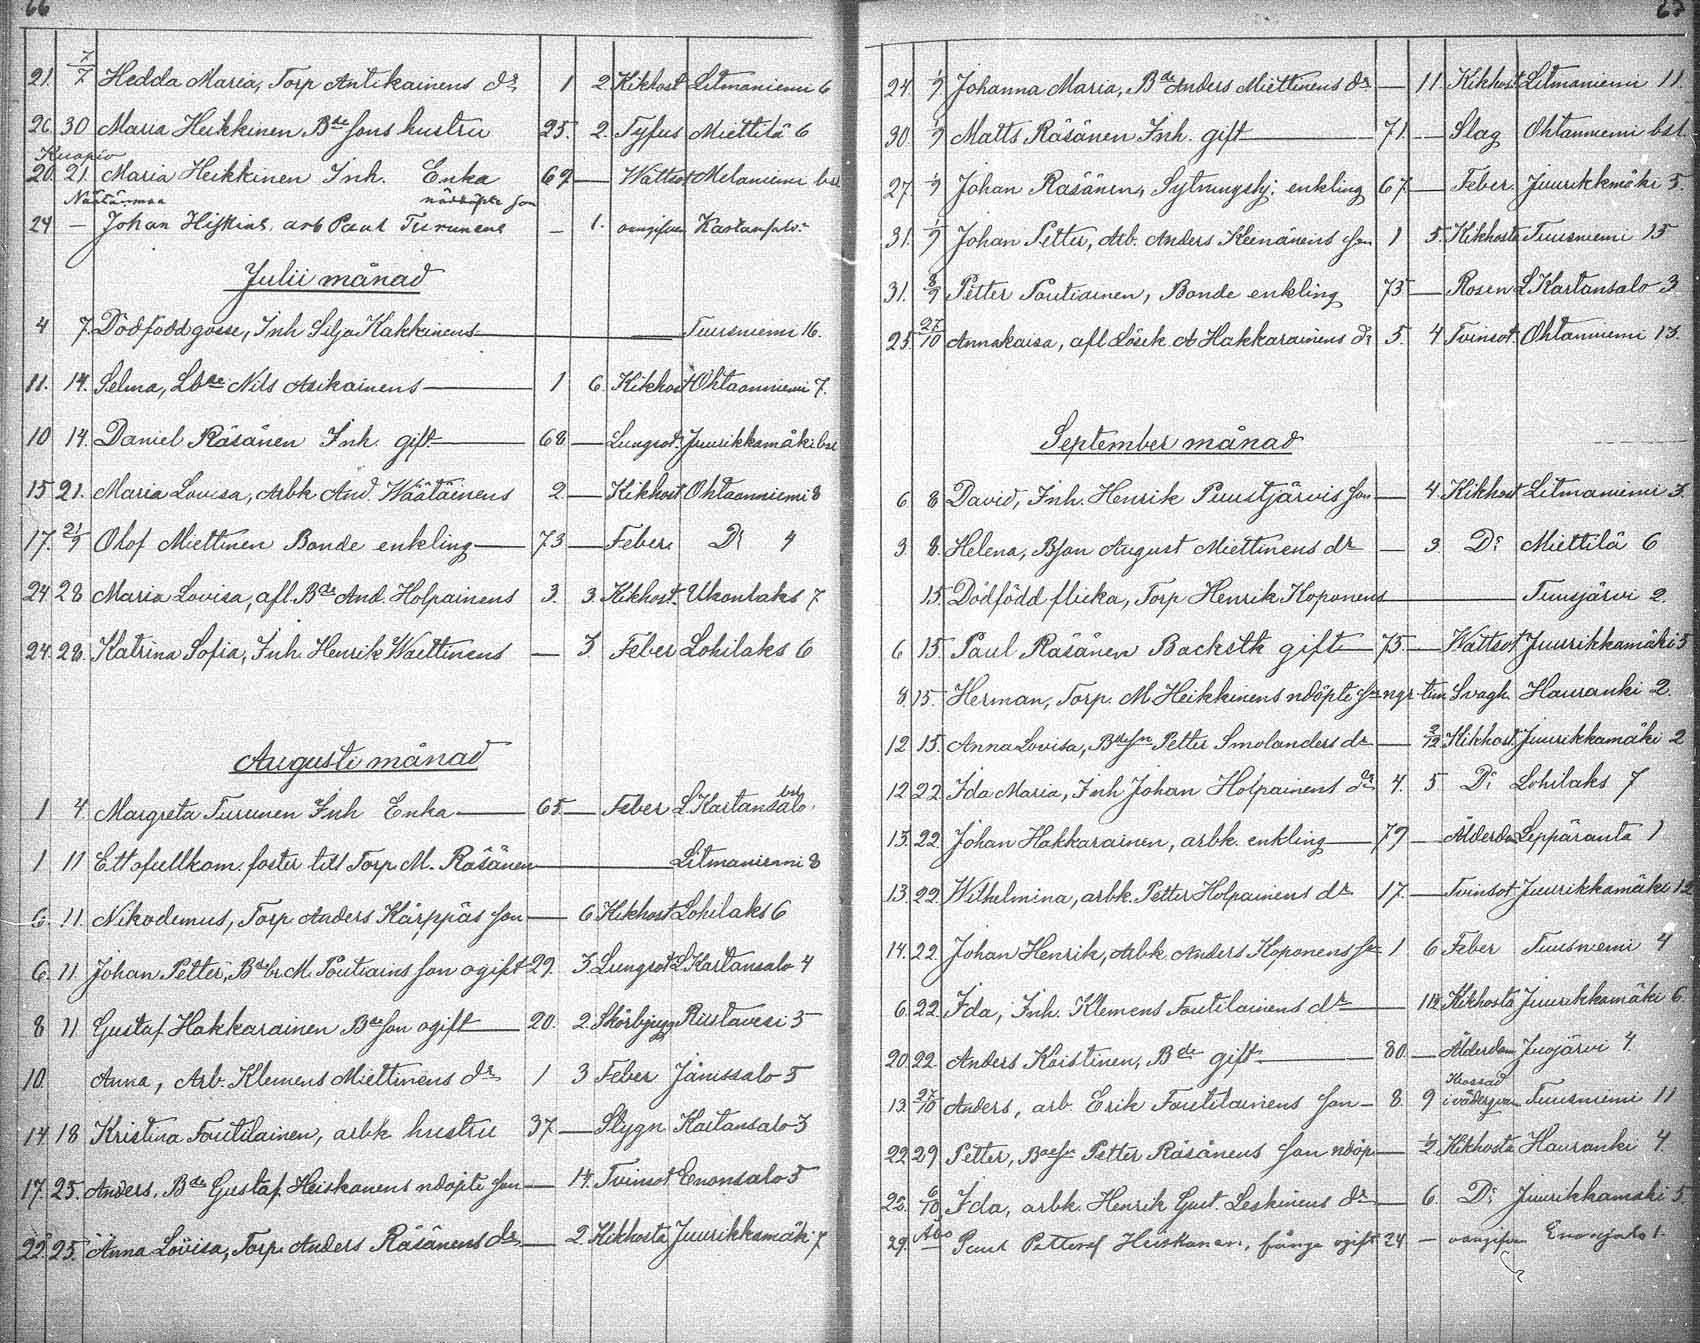 66
21. 7/7 Hedda Maria, Torp Antikainens dr 1 2 Kikhost Litmaniemi 6
26 30 Maria Heikkinen Bde sons hustru 25. 2. Tyfus Miettilä 6
Kuopio
20. 21. Maria Heikkinen Inh. Enka 69 — Wattsot Melaniemi bst
nödöpte son
24 — Johan Hiskias, arb Paul Turunens — 1. oangifven Kartansalo
Julii månad
4 7. Dödfödd gosse, Inh Silja Kakkinens — Tuusniemi 16.
11. 14. Selma, Lbde Nils Asikainens — 1 6. Kikhost Ohtaanniemi 7.
10 14. Daniel Räsänen Inh. gift — 68 — Lungsot. Juurikkamäki bst
15 21. Maria Lovisa, Arbk And. Wäätäinens 2 — Kikhost Ohtaanniemi 8
17. 21/9 Olof Miettinen Bonde enkling — 73 — Feber. Do 4
24 28 Maria Lovisa, afl. Bde And. Holpainens 3. 3. Kikhost. Ukonlaks 7
24. 28. Katrina Sofia, Inh. Henrik Waittinens — 3. Feber Lohilaks 6
Augusti månad
1 4. Margreta Turunen Inh Enka — 65 — Feber L. Kartansalo bst
1 11 Ett ofullkom. foster till Torp. M. Räsänen — Litmaniemi 8
6. 11. Nikodemus, Torp Anders Kärppäs son — 6 Kikhost Lohilaks 6
6. 11. Johan Petter, Bdebr. M. Poutiains son ogift 29. 3. Lungsot L. Kartansalo 4
8 11 Gustaf Hakkarainen Bde son ogift — 20. 2. Skörbjugg Ristavesi 5
10. Anna, Arb. Klemens Miettinens dr 1 3 Feber Jänissalo 5
14 18 Kristina Toutilainen, arbk hustru 37 — Slygn Kartansalo 3
17. 25. Anders, Bde Gustaf Heiskanens nödöpte son — 14. Tvinsot Enonsalo 5
22. 25. Anna Lovisa, Torp. Anders Räsänens dr — 2 Kikhosta Juurikkamäki 7
67
24. 1/9 Johanna Maria, Bde Anders Miettinens dr — 11. Kikhost Litmaniemi 11.
30. 1/9 Matts Räsänen Inh. gift — 71. — Slag Ohtanniemi bst.
27 1/9 Johan Räsänen, Sytningshj. enkling 67. — Feber. Juurikkmäki 5.
31. 1/9 Johan Petter, Arb. Anders Keinänens son 1 5. Kikhosta Tuusniemi 15
31. 8/9 Petter Poutiainen, Bonde enkling 75 — Rosen L. Kartansalo 3
25. 27/10 Annakaisa, afl Lösk. A Hakkarainens dr 5. 4 Tvinsot. Ohtanniemi 13.
September månad
6 8 David, Inh. Henrik Puustjärvis son — 4 Kikhost Litmaniemi 3.
3. 8. Helena, Bson August Miettinens dr — 3. Do Miettilä 6
15. Dödfödd flicka, Torp Henrik Koponens — Tuusjärvi 2.
6 15. Paul Räsänen Backstk gift — 75. — Wattsot Juurikkamäki 5
8. 15. Herman, Torp. M. Heikkinens nödöpte son ngr tim Svagh. Hauranki 2.
12 15. Anna Lovisa, Bdeson Petter Smolanders dr — 2/12 Kikhost. Juurikkamäki 2
12 22. Ida Maria, Inh Johan Holpainens dr 4. 5 Do Lohilaks 7
13. 22. Johan Hakkarainen, arbk. enkling — 79 — Ålderdom Leppäranta 1
13. 22. Wilhelmina, arbk. Petter Holpainens dr 17. — Tvinsot Juurikkamäki 12
14. 22. Johan Henrik, Arbk Anders Koponens son 1 6 Feber Tuusniemi 4
6. 22. Ida, Inh. Klemens Toutilainens dr — Kikhosta Juurikkamäki 6.
20. 22. Anders Koistinen, Bde gift — 80 — Ålderdom Juojärvi 4.
13. 27/10 Anders, arb. Erik Toutilainens son — 8. 9 Krossad i väderqvarn Tuusniemi 11
22 29 Petter, Bdeson Petter Räsänens son nödöp — 1/2 Kikhosta Hauranki 4.
22. 6/10 Ida, arbk. Henrik Gust. Leskinens dr — 6. Do Juurikkamäki 5.
Åbo
29. — Paul Petterss Heiskanen, fånge ogift 24 — oangifven Enonsalo 1.